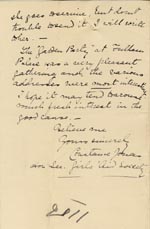 she goes overseas but don't
trouble to send it I will write
other —
The "Garden Party" at Fulham
Palace was a very pleasant
gathering and the various
addresses were most interesting
I hope it may tend to arouse
much fresh interest in the
good cause. —
Believe me
Yours sincerely
Hon Sec. Girls' Club Society